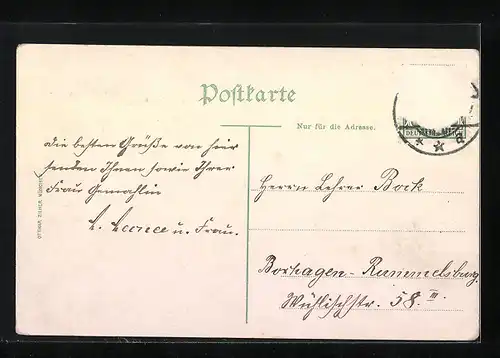 Postkarte
Nur für die Adresse.
DEUTSCHES REICH
die besten Grüße von hier
senden Ihnen sowie Ihrer
Frau Gemahlin
u. Frau.
Herrn Lehrer Bock
Boxhagen-Rummelsburg.
Wühlischstr. 58 III.
OTTMAR ZIEHER, MÜNCHEN